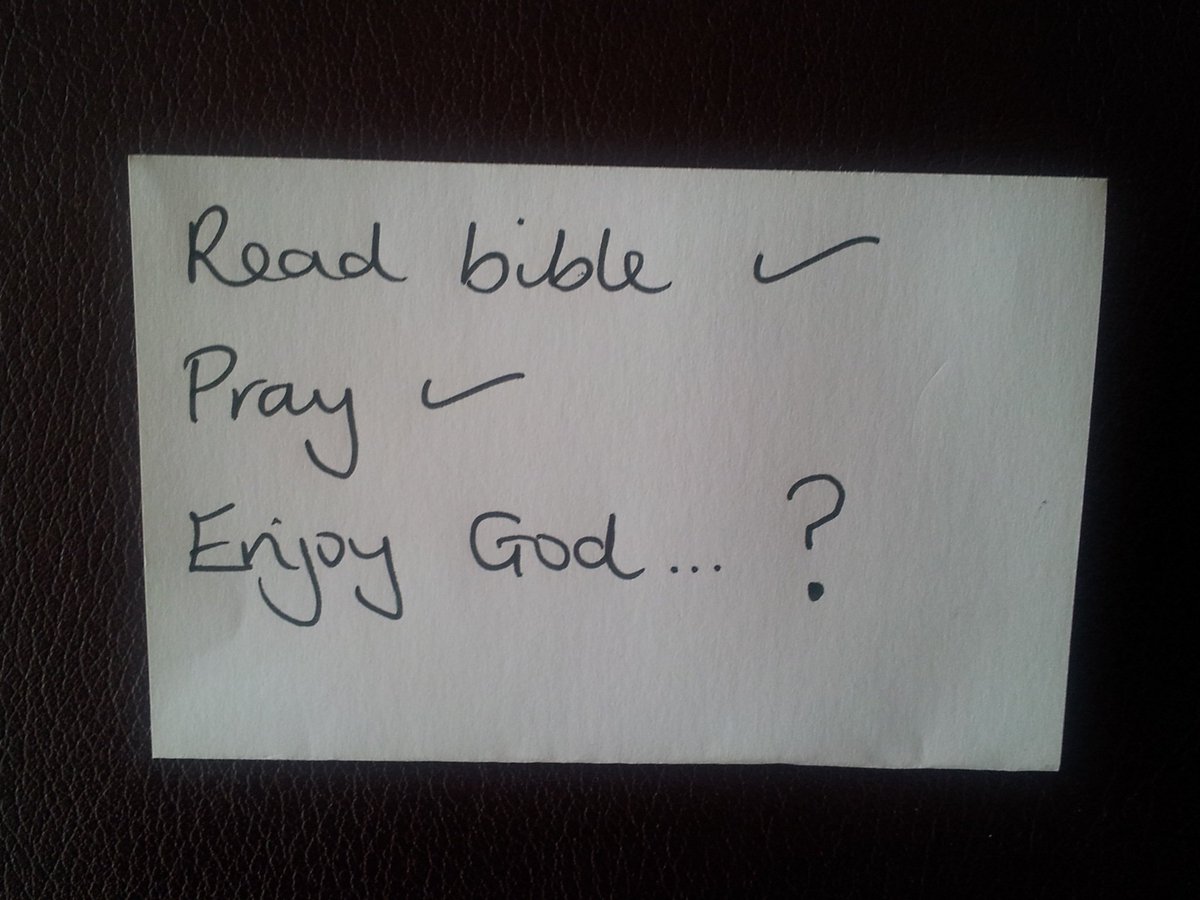 Read bible ✓
Pray ✓
Enjoy God... ?